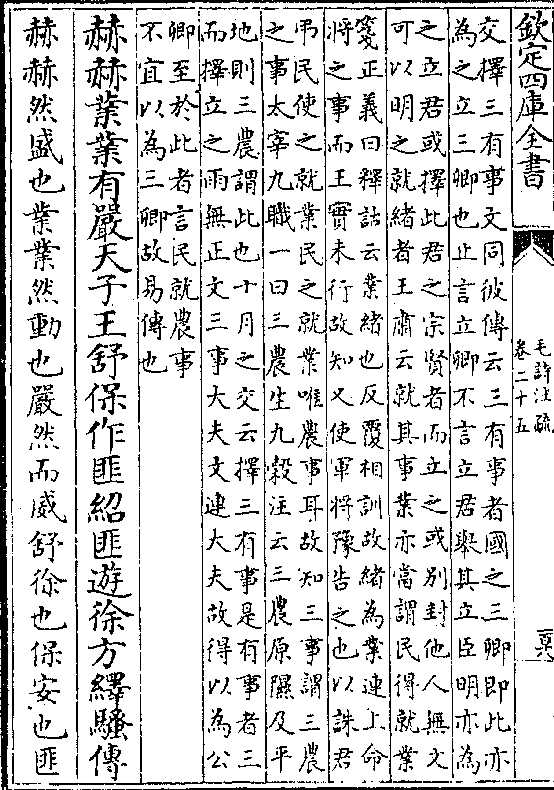 欽定四庫全書
毛詩注疏
卷二十五
交擇三有事文同彼傳云三有事者國之三卿即此亦
為之立三卿也止言立卿不言立君舉其立臣明亦為
之立君或擇此君之宗賢者而立之或別封他人無文
可以明之就緒者王肅云就其事業亦當謂民得就業
箋正義曰釋詁云業緒也反覆相訓故緒為業連上命
將之事而王實未行故知又使軍將豫告之也以誅君
弔民使之就業民之就業唯農事耳故知三事謂三農
之事太宰九職一曰三農生九穀注云三農原隰及平
地則三農謂此也十月之交云擇三有事是有事者三
而擇立之雨無正文三事大夫文連大夫故得以為公
卿至於此者言民就農事
不宜以為三卿故易傳也
赫赫業業有嚴天子王舒保作匪紹匪遊徐方繹騷傳
赫赫然盛也業業然動也嚴然而威舒徐也保安也匪